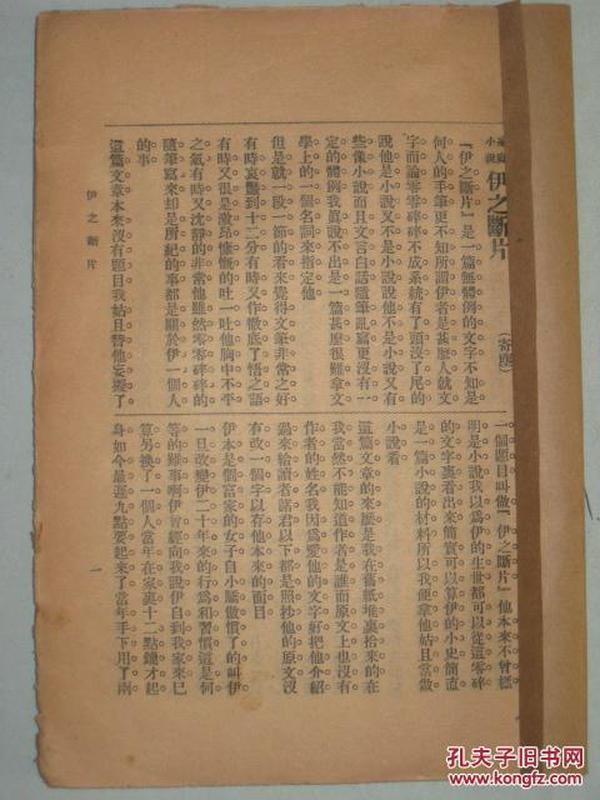 小說
伊之斷片
(寄塵)
『伊之斷片』是一篇無體例的文字不知是
何人的手筆更不知所謂伊者是甚麼人就文
字而論零零碎碎不成系統有了頭沒了尾的
說他是小說又不是小說說他不是小說又有
些像小說而且文言白話隨筆亂寫更沒有一
定的體例我眞說不出是一篇甚麼很難拿文
學上的一個名詞來指定他
但是就一段一節的看來覺得文筆非常之好
有時哀豔到十二分有時又作徹底了悟之語
有時又很是激昂慷慨的吐一吐他胸中不平
之氣有時又沈靜的非常他雖然零零碎碎的
隨筆寫來却是所紀的事都是關於伊一個人
的事
這篇文章本來沒有題目我姑且替他妄擬了
一個題目叫做『伊之斷片』他本來不曾標
明是小說我以爲伊的生世都可以從這零碎
的文字裏看出來簡實可以算伊的小史簡直
是一篇小說的材料所以我便拿他姑且當做
小說看
這篇文章的來歷是我在舊紙堆裏拾來的在
我當然不能知道作者是誰而原文上也沒有
作者的姓名我因爲愛他的文字好把他介紹
過來給讀者諸君以下都是照抄他的原文沒
有改一個字以存他本來的面目
伊本是個富家的女子自小驕傲慣了的叫伊
一旦改變伊二十年來的行爲和習慣這是何
等的難事啊伊曾經向我說伊自到我家來已
算另換了一個人當年在家裏十二點鐘才起
身如今最遲九點要起來了當年手下用了兩
伊之斷片
一
孔夫子舊书网
www.kongfz.com